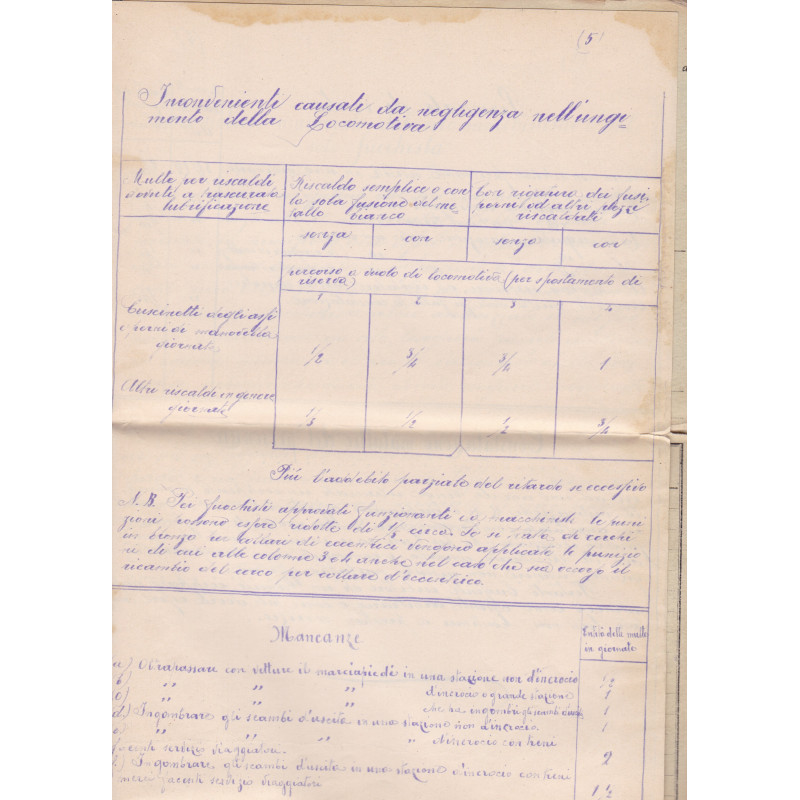 (5)
Inconvenienti causati da negligenza nell'unge=
mento della Locomotiva
Multe per riscaldi
dovuti a trascurata
lubrificazione
Riscaldo semplice o con
la sola fusione del me
tallo bianco
Con rigatura dei fusi,
perni od altri pezzi
riscaldati
senza
con
senza
con
percorso a vuoto di locomotiva (per spostamento di
riserva)
1
2
3
4
Cuscinetti degli assi
e perni di manovella
giornate
1/2
3/4
3/4
1
Altri riscaldi in genere
giornate
1/3
1/2
1/2
3/4
Più l'addebito parziale del ritardo se eccessivo
N.B. Pei fuochisti approvati funzionanti da macchinisti le puni
zioni possono essere ridotte di 1/3 circa. Se si tratta di cerchi
in bronzo per collari di eccentrici vengono applicate le punizio
ni di cui alle colonne 3 e 4 anche nel caso che ne occorra il
ricambio del cerco per collare d'eccentrico.
Mancanze
Entità delle multe
in giornate
a) Oltrepassare con vetture il marciapiedi in una stazione non d'incrocio
1/2
b) " " " d'incrocio o grande stazione
1
c) " " " che ha ingombri gli scambi d'uscita
1
d) Ingombrare gli scambi d'uscita in una stazione non d'incrocio.
1
e) " " " d'incrocio con treni
facenti servizio viaggiatori.
2
Ingombrare gli scambi d'uscita in una stazione d'incrocio con treni
merci facenti servizio viaggiatori
1 1/2